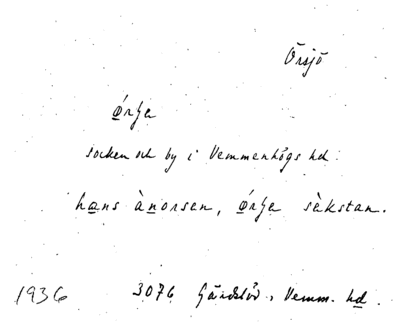 Örsjö
ǿrʃa
socken och by i Vemmenhögs hd.
hans ànorsen, ǿrʃa sèkstan.
1936 3076 Vemm. hd.